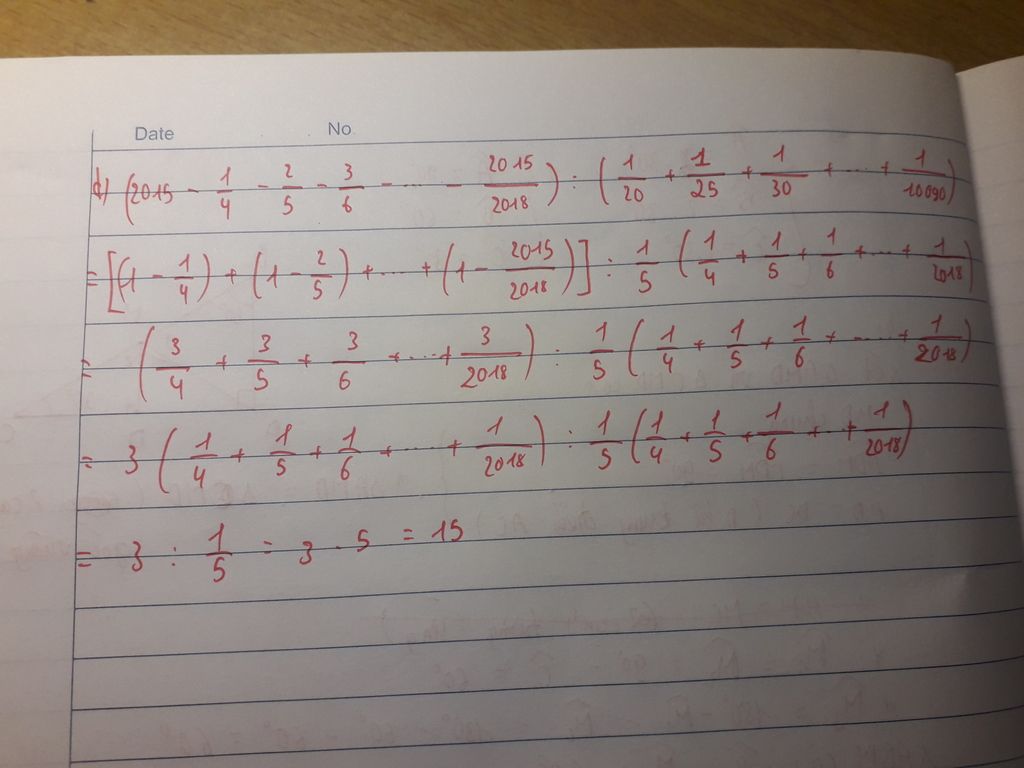 Date No
d) (2015 - 1/4 - 2/5 - 3/6 - ... - 2015/2018) : (1/20 + 1/25 + 1/30 + ... + 1/10090)
= [(1 - 1/4) + (1 - 2/5) + ... + (1 - 2015/2018)] : 1/5 (1/4 + 1/5 + 1/6 + ... + 1/2018)
= (3/4 + 3/5 + 3/6 + ... + 3/2018) : 1/5 (1/4 + 1/5 + 1/6 + ... + 1/2018)
= 3 (1/4 + 1/5 + 1/6 + ... + 1/2018) : 1/5 (1/4 + 1/5 + 1/6 + ... + 1/2018)
= 3 : 1/5 = 3 . 5 = 15